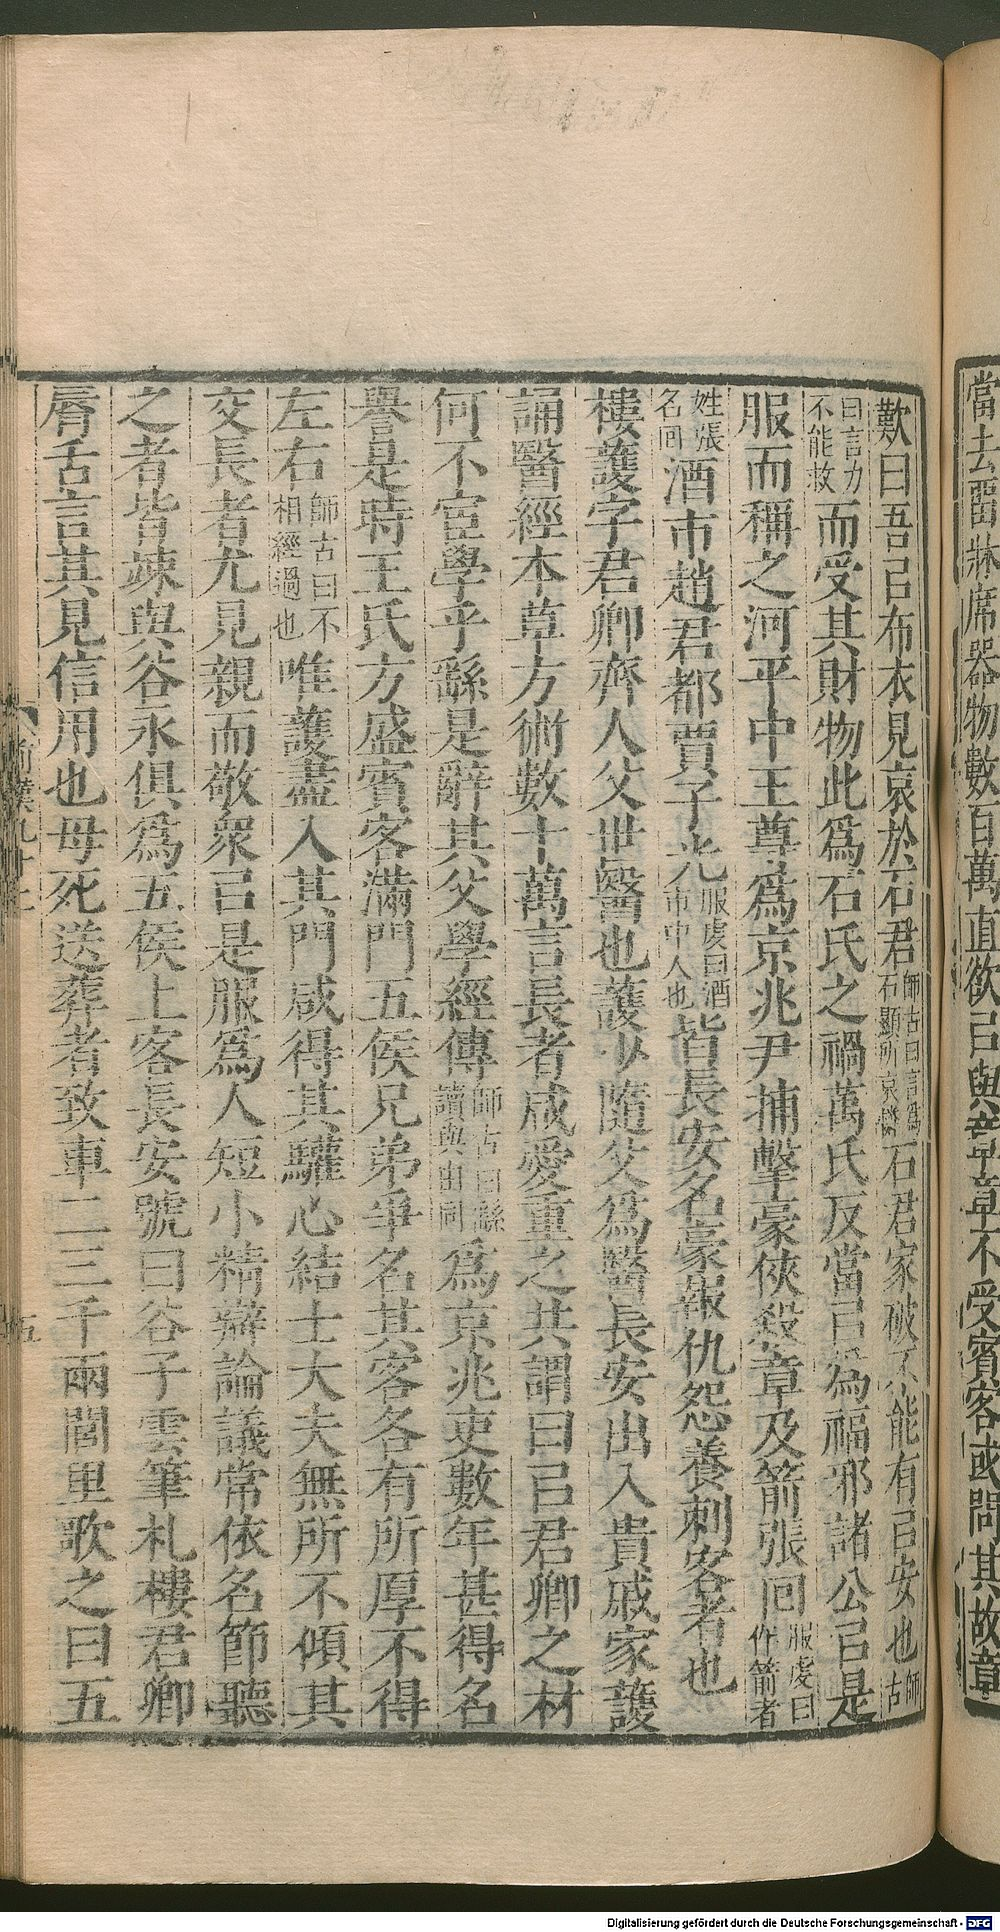 當去畱牀席器物數百萬直欲㠯與章章不受賓客或問其故章
歎曰吾㠯布衣見哀於石君師古曰言爲石顯所哀憐石君家破不能有㠯安也師古
曰言力不能救而受其財物此爲石氏之禍萬氏反當㠯爲福邪諸公㠯是
服而稱之河平中王尊爲京兆尹捕擊豪俠殺章及箭張回服虔曰作箭者
姓張名回酒市趙君都賈子光服虔曰酒市中人也皆長安名豪報仇怨養刺客者也
樓護字君卿齊人父世醫也護少隨父爲醫長安出入貴戚家護
誦醫經本草方術數十萬言長者咸愛重之共謂曰㠯君卿之材
何不宦學乎繇是辭其父學經傳師古曰繇讀與由同爲京兆吏數年甚得名
譽是時王氏方盛賓客滿門五侯兄弟爭名其客各有所厚不得
左右師古曰不相經過也唯護盡入其門咸得其驩心結士大夫無所不傾其
交長者尤見親而敬衆㠯是服爲人短小精辯論議常依名節聽
之者皆竦與谷永俱爲五侯上客長安號曰谷子雲筆札樓君卿
脣舌言其見信用也母死送葬者致車二三千兩閭里歌之曰五
五
Digitalisierung gefördert durch die Deutsche Forschungsgemeinschaft - DFG